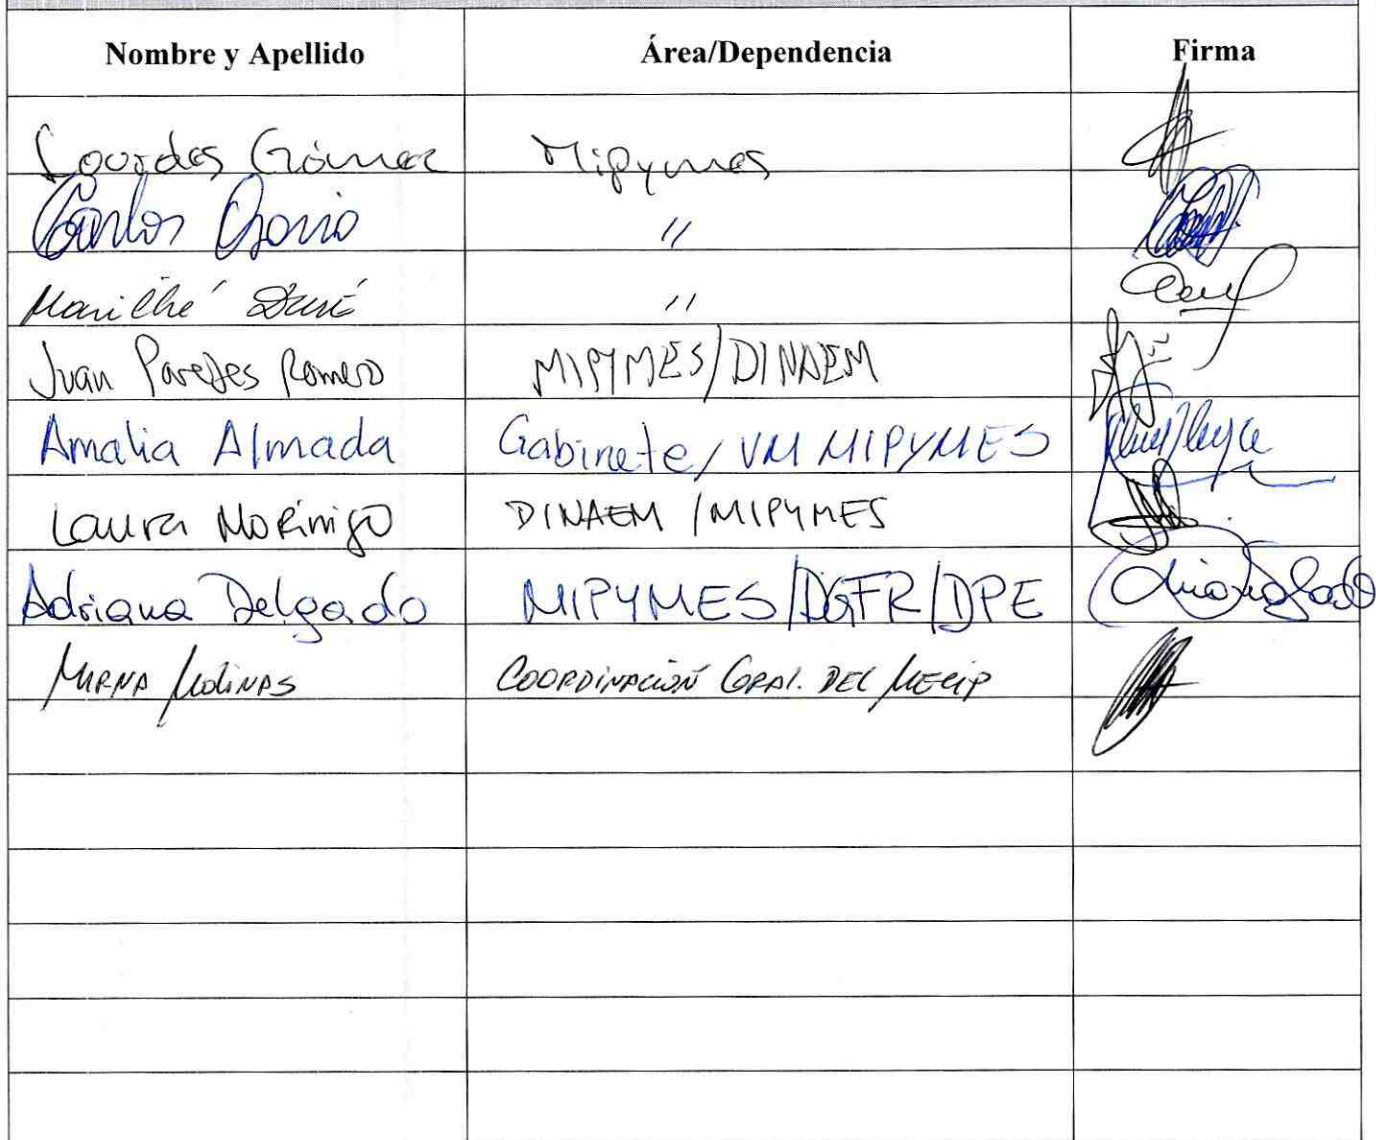 Nombre y Apellido Área/Dependencia Firma
Lourdes Gómez Mipymes
Carlos Osorio "
Marilhé Duré "
Juan Paredes Romero MIPYMES/DINAEM
Amalia Almada Gabinete/VM MIPYMES
Laura Morínigo DINAEM/MIPYMES
Adriana Delgado MIPYMES/DGFR/DPE
MIRNA MOLINAS COORDINACIÓN GRAL. DEL MECIP